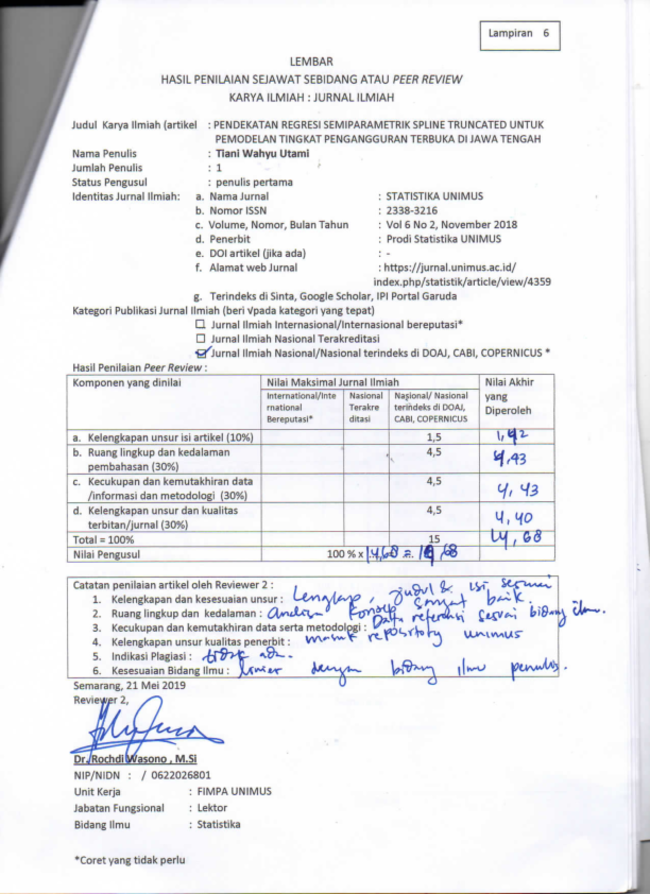 Lampiran 6
LEMBAR
HASIL PENILAIAN SEJAWAT SEBIDANG ATAU PEER REVIEW
KARYA ILMIAH : JURNAL ILMIAH
Judul Karya Ilmiah (artikel : PENDEKATAN REGRESI SEMIPARAMETRIK SPLINE TRUNCATED UNTUK
PEMODELAN TINGKAT PENGANGGURAN TERBUKA DI JAWA TENGAH
Nama Penulis : Tiani Wahyu Utami
Jumlah Penulis : 1
Status Pengusul : penulis pertama
Identitas Jurnal Ilmiah: a. Nama Jurnal : STATISTIKA UNIMUS
b. Nomor ISSN : 2338-3216
c. Volume, Nomor, Bulan Tahun : Vol 6 No 2, November 2018
d. Penerbit : Prodi Statistika UNIMUS
e. DOI artikel (jika ada) : -
f. Alamat web Jurnal : https://jurnal.unimus.ac.id/
index.php/statistik/article/view/4359
g. Terindeks di Sinta, Google Scholar, IPI Portal Garuda
Kategori Publikasi Jurnal Ilmiah (beri √pada kategori yang tepat)
Jurnal Ilmiah Internasional/Internasional bereputasi*
Jurnal Ilmiah Nasional Terakreditasi
Jurnal Ilmiah Nasional/Nasional terindeks di DOAJ, CABI, COPERNICUS *
Hasil Penilaian Peer Review :
Komponen yang dinilai
Nilai Maksimal Jurnal Ilmiah
Nilai Akhir
yang
Diperoleh
International/Inte
rnational
Bereputasi*
Nasional
Terakre
ditasi
Nasional/ Nasional
terindeks di DOAJ,
CABI, COPERNICUS
a. Kelengkapan unsur isi artikel (10%) 1,5 1,42
b. Ruang lingkup dan kedalaman
pembahasan (30%) 4,5 4,43
c. Kecukupan dan kemutakhiran data
/informasi dan metodologi (30%) 4,5 4,43
d. Kelengkapan unsur dan kualitas
terbitan/jurnal (30%) 4,5 4,40
Total = 100% 15 14,68
Nilai Pengusul 100 % x 14,68 = 14,68
Catatan penilaian artikel oleh Reviewer 2 :
1. Kelengkapan dan kesesuaian unsur : Lengkap, judul & isi sesuai
2. Ruang lingkup dan kedalaman : konsep sangat baik
3. Kecukupan dan kemutakhiran data serta metodologi : Data referensi sesuai bidang ilmu.
4. Kelengkapan unsur kualitas penerbit : masuk repository unimus
5. Indikasi Plagiasi : tidak ada.
6. Kesesuaian Bidang Ilmu : linier dengan bidang ilmu penulis.
Semarang, 21 Mei 2019
Reviewer 2,
Dr. Rochdi Wasono , M.Si
NIP/NIDN : / 0622026801
Unit Kerja : FIMPA UNIMUS
Jabatan Fungsional : Lektor
Bidang Ilmu : Statistika
*Coret yang tidak perlu